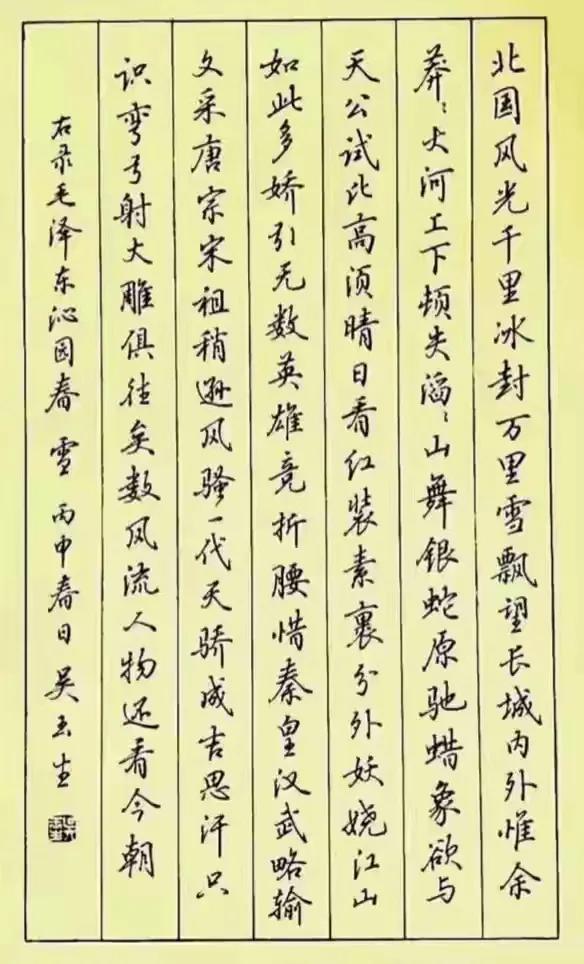 北国风光千里冰封万里雪飘望长城内外惟余
莽〻大河上下顿失滔〻山舞银蛇原驰蜡象欲与
天公试比高须晴日看红装素裹分外妖娆江山
如此多娇引无数英雄竞折腰惜秦皇汉武略输
文采唐宗宋祖稍逊风骚一代天骄成吉思汗只
识弯弓射大雕俱往矣数风流人物还看今朝
右录毛泽东沁园春 雪 丙申春日 吴玉生